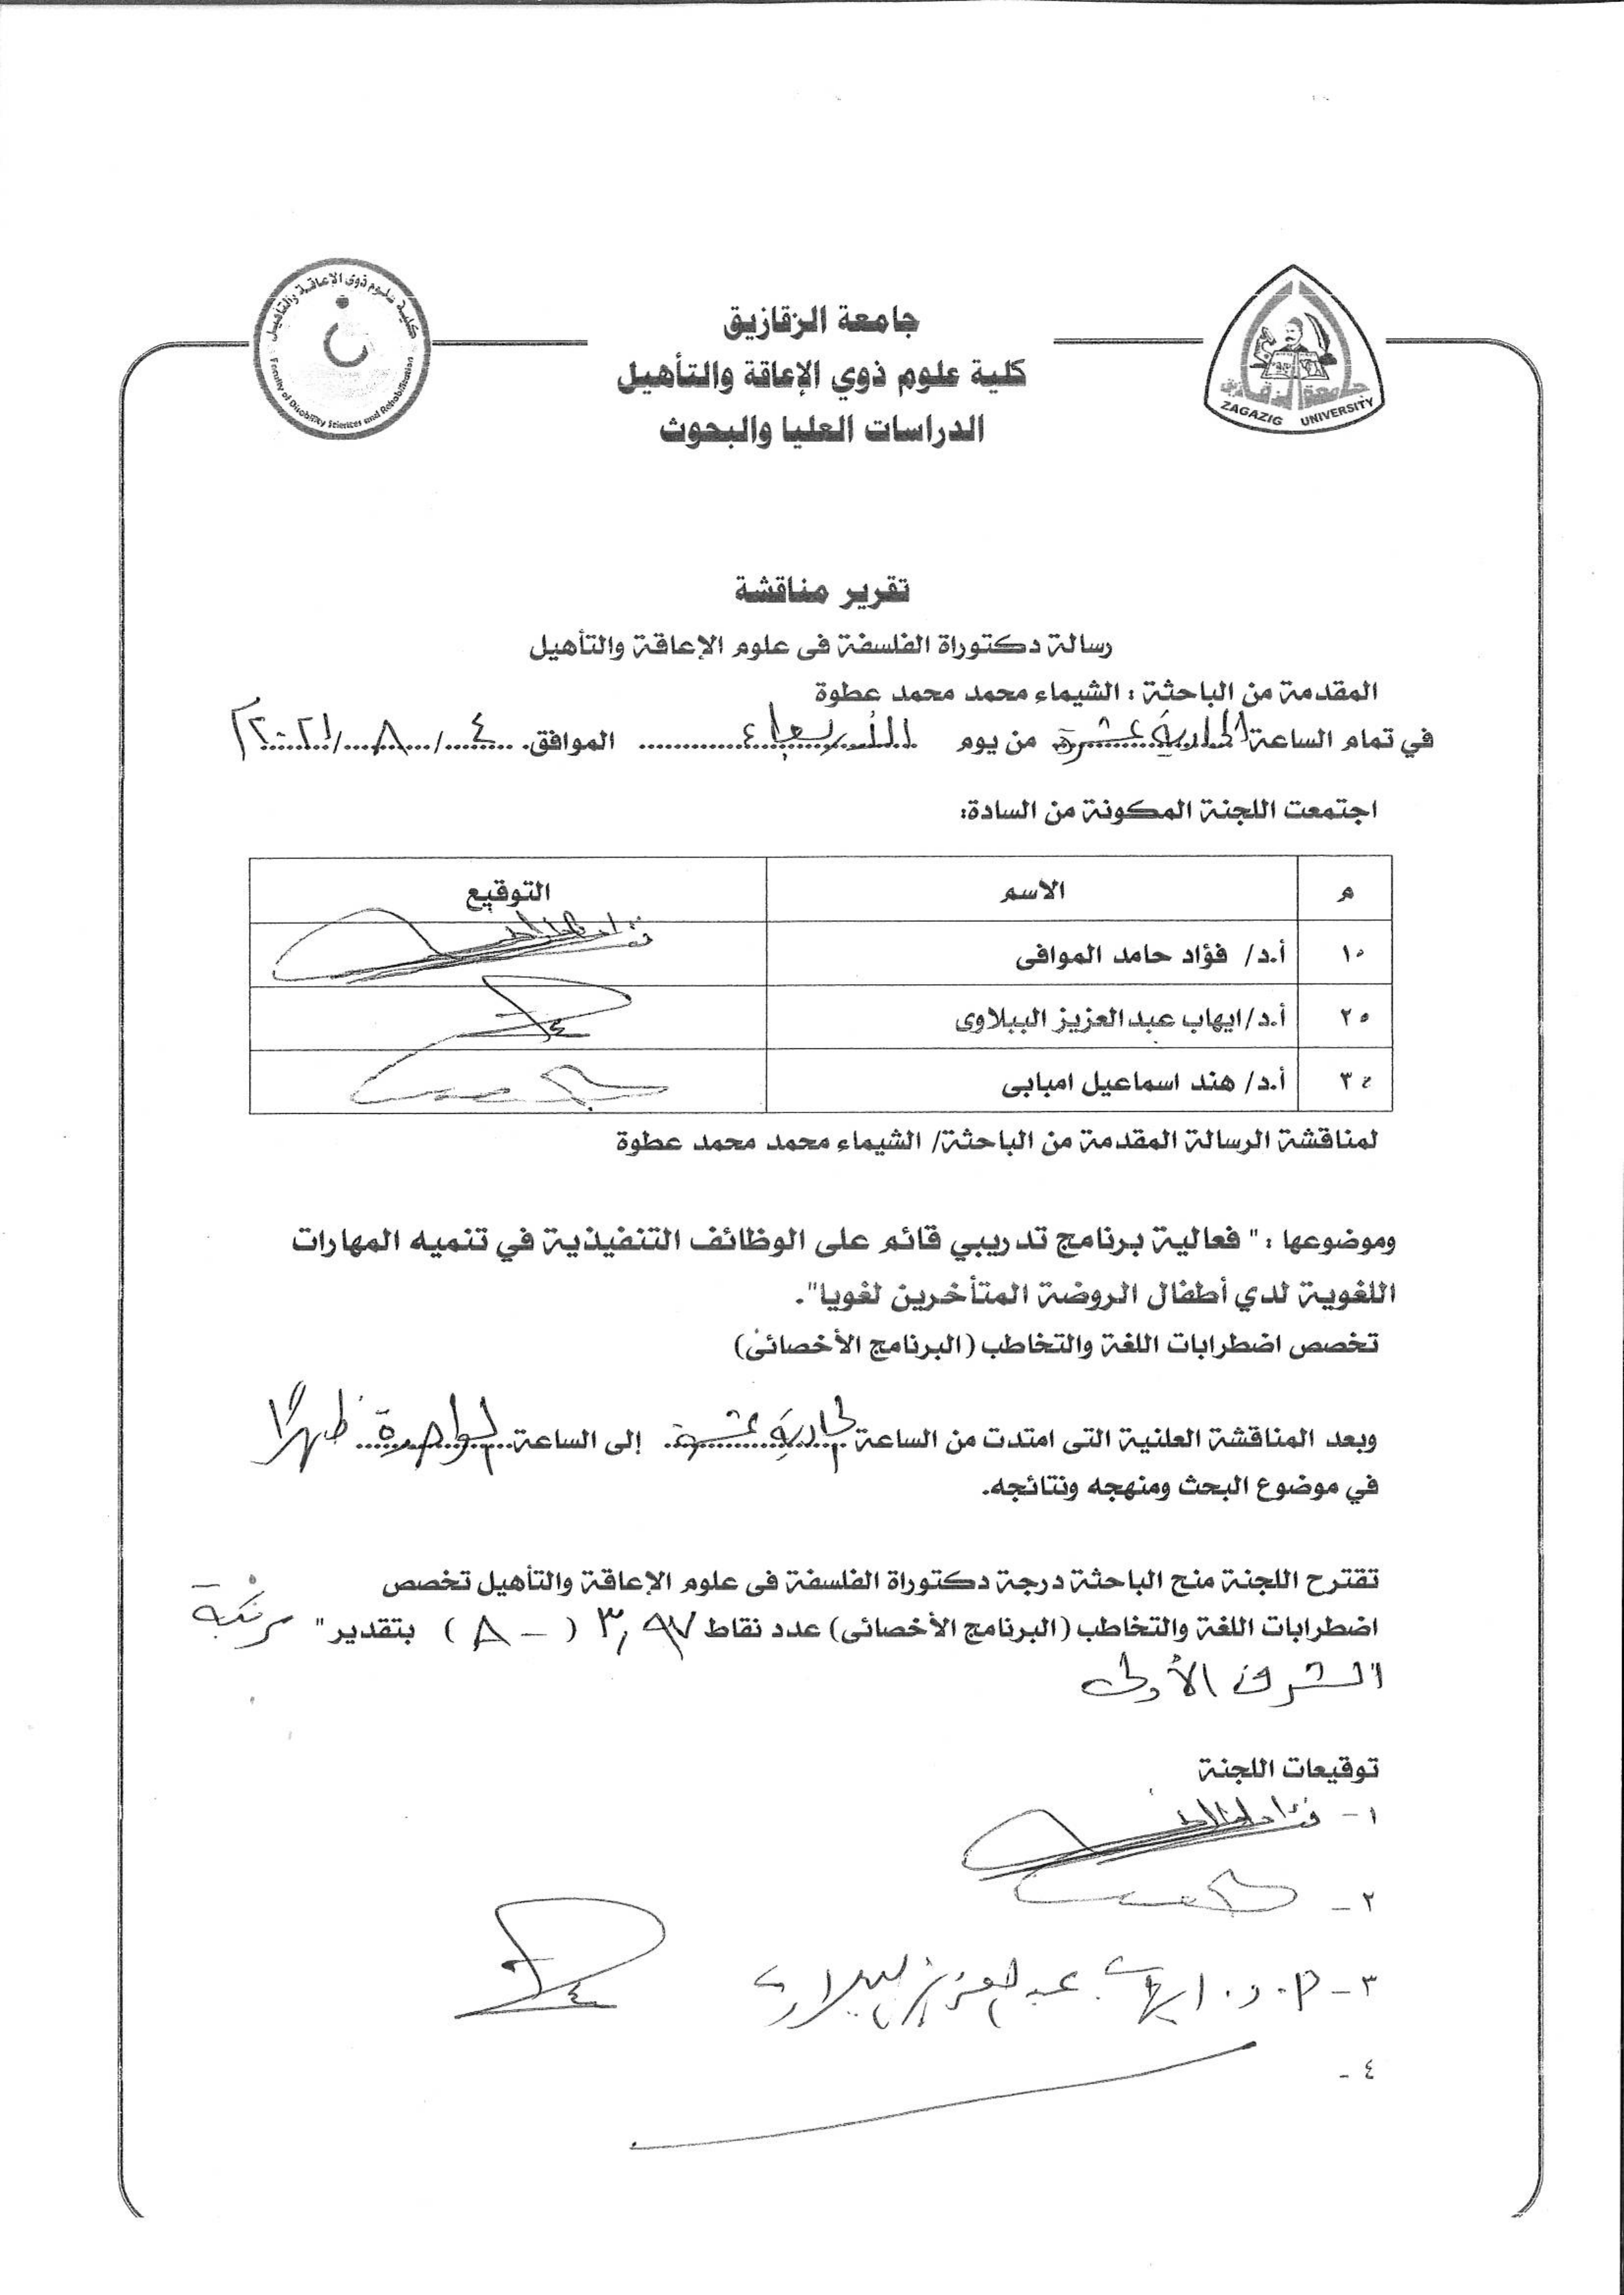 كلية علوم ذوى الإعاقة والتأهيل
Faculty of Disability Sciences and Rehabilitation
جامعة الزقازيق
ZAGAZIG UNIVERSITY
جامعة الزقازيق
كلية علوم ذوي الإعاقة والتأهيل
الدراسات العليا والبحوث
تقرير مناقشة
رسالة دكتوراة الفلسفة فى علوم الإعاقة والتأهيل
المقدمة من الباحثة : الشيماء محمد محمد عطوة
في تمام الساعة الحادية عشرة من يوم الأربعاء الموافق ٤/٨/٢٠٢١م
اجتمعت اللجنة المكونة من السادة:
م الاسم التوقيع
١ أ.د/ فؤاد حامد الموافى
٢ أ.د/ايهاب عبدالعزيز الببلاوى
٣ أ.د/ هند اسماعيل امبابى
لمناقشة الرسالة المقدمة من الباحثة/ الشيماء محمد محمد عطوة
وموضوعها : " فعالية برنامج تدريبي قائم على الوظائف التنفيذية في تنميه المهارات
اللغوية لدي أطفال الروضة المتأخرين لغويا".
تخصص اضطرابات اللغة والتخاطب (البرنامج الأخصائى)
وبعد المناقشة العلنية التى امتدت من الساعة الحادية عشرة إلى الساعة الواحدة ظهرًا
في موضوع البحث ومنهجه ونتائجه.
تقترح اللجنة منح الباحثة درجة دكتوراة الفلسفة فى علوم الإعاقة والتأهيل تخصص
اضطرابات اللغة والتخاطب (البرنامج الأخصائى) عدد نقاط ٣,٩٧ ( A - ) بتقدير " مرتبة
الشرف الأولى
توقيعات اللجنة
١-
٢-
٣- أ.د. ايهاب عبدالعزيز الببلاوى
٤-